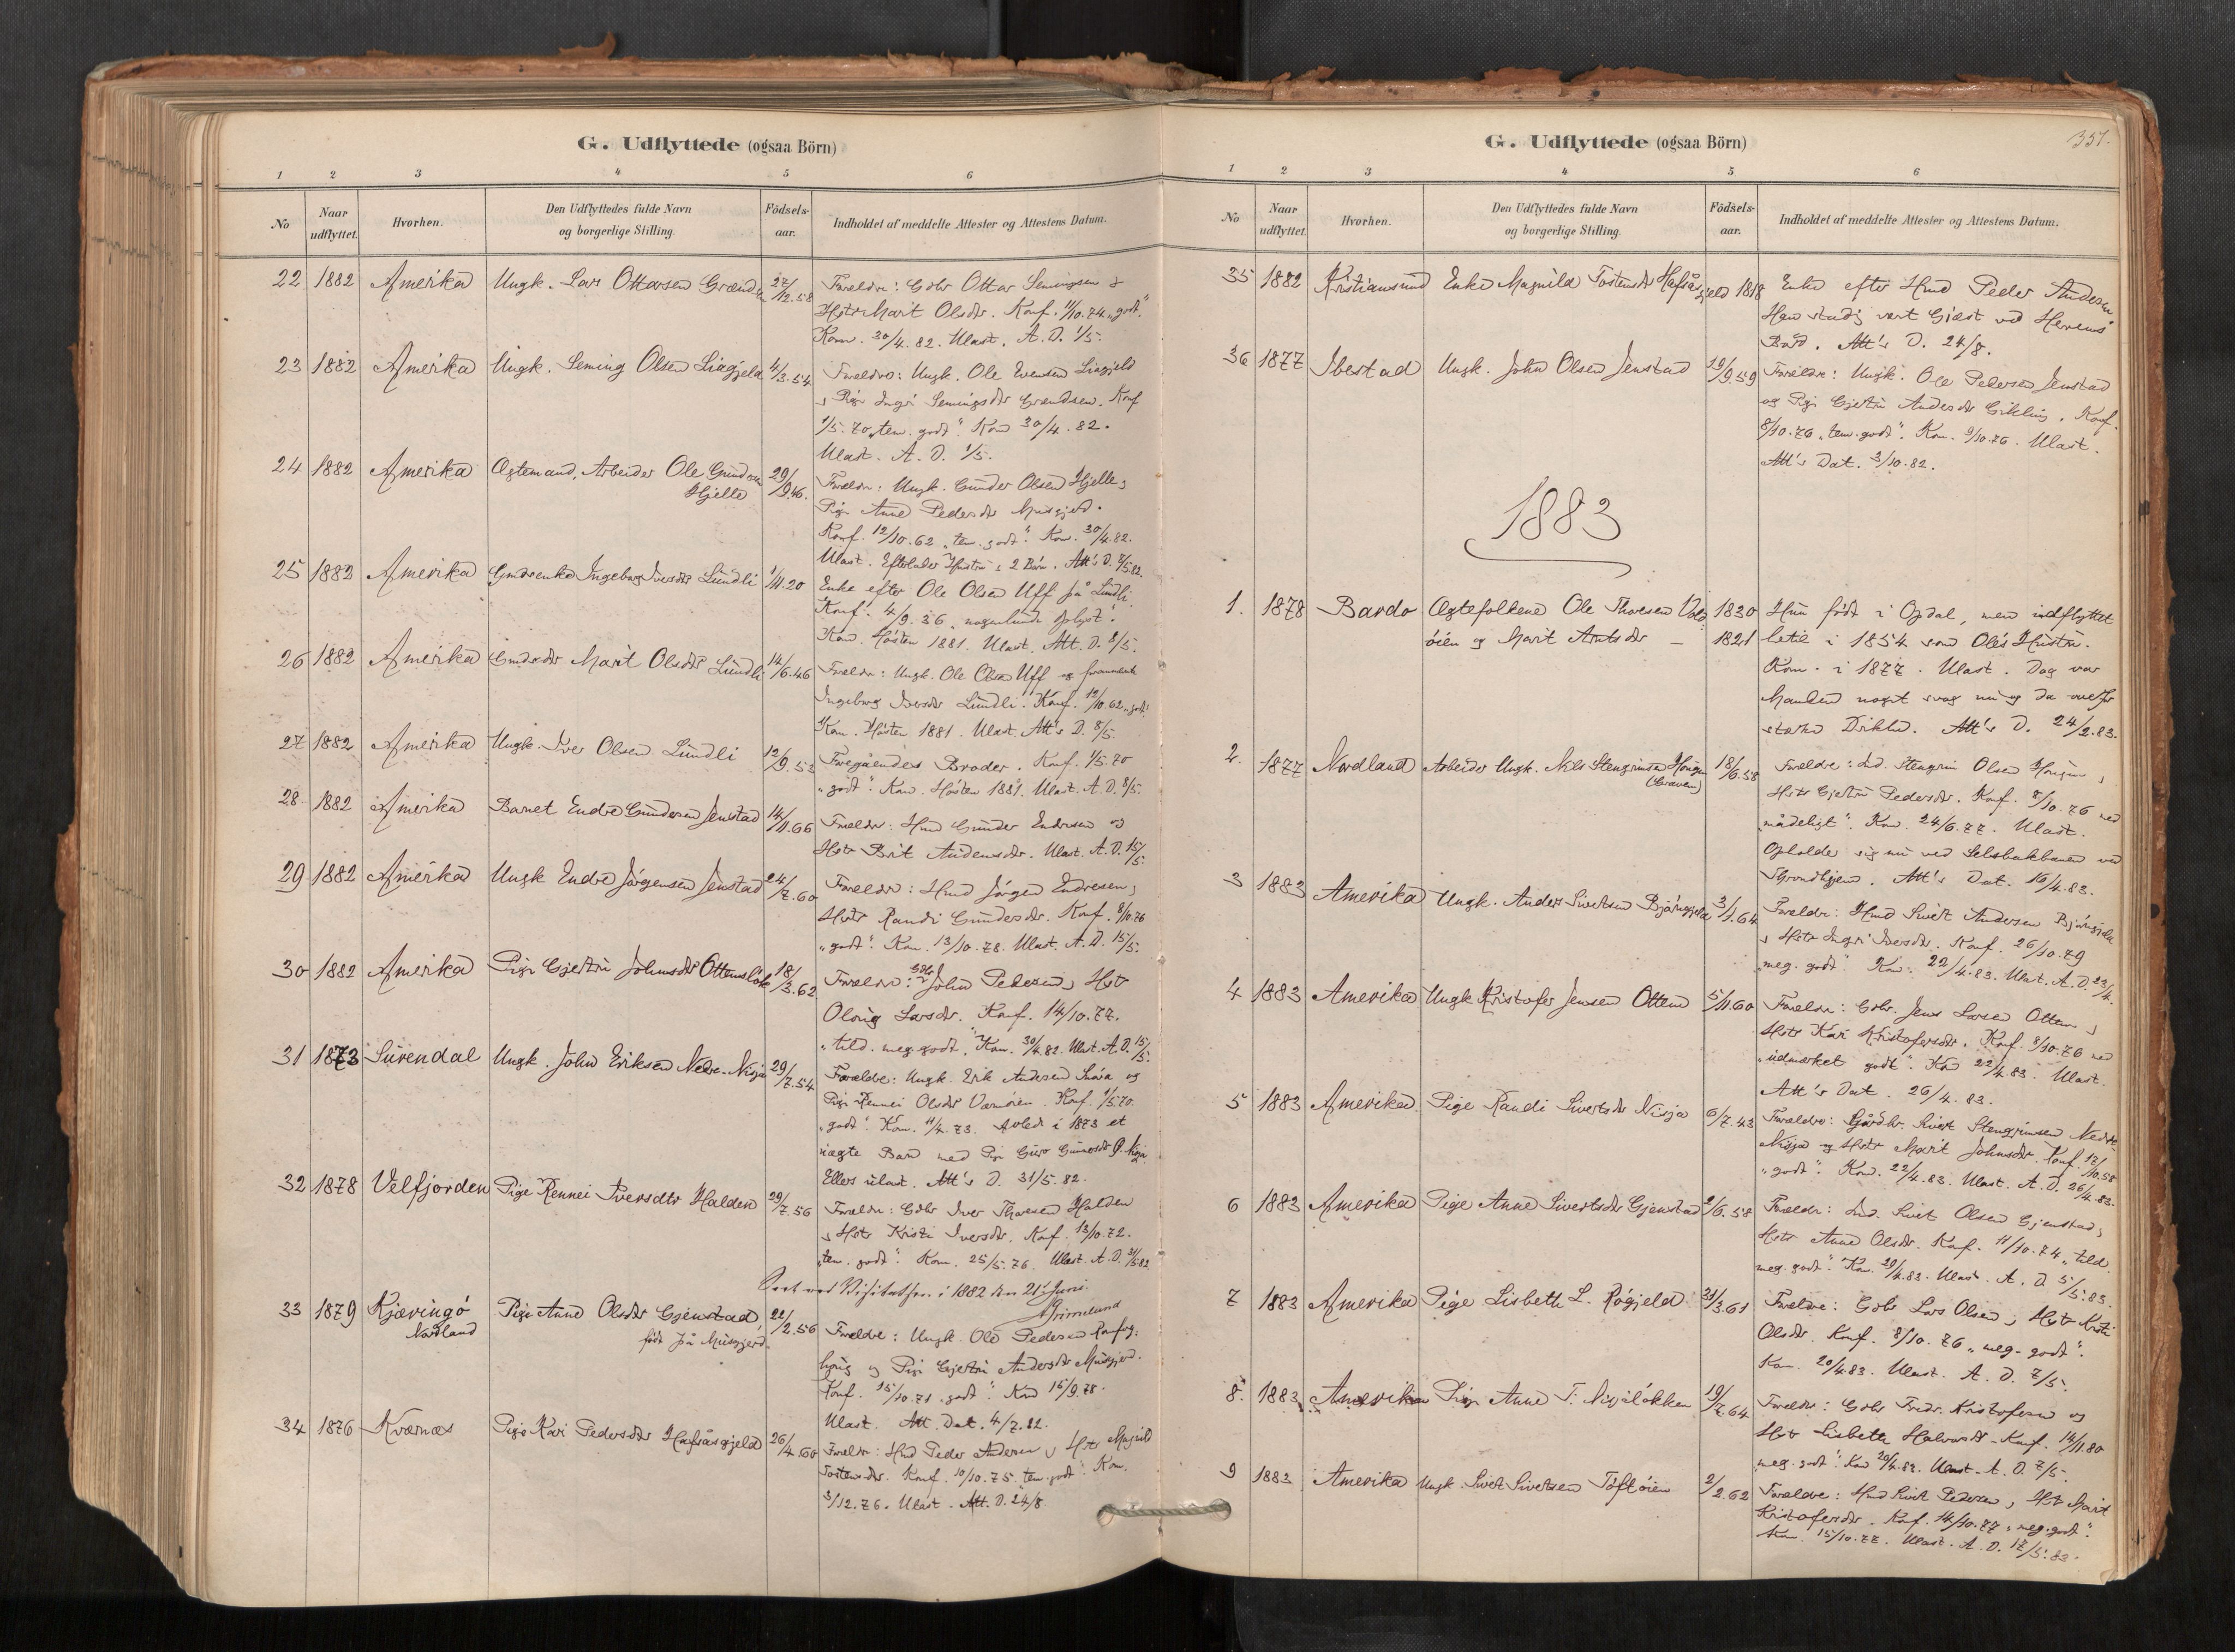 G. Udflyttede (ogsaa Börn)
1 2 3 4 5 6
No
Naar udflyttet.
Hvorhen.
Den Udflyttedes fulde Navn og borgerlige Stilling.
Födsels-aar.
Indholdet af meddelte Attester og Attestens Datum.
22 1882 Amerika Ungk. Lars Ottarsen 27/12.58 Forældre: Gdbr Ottar Semingsen &
Hstr Marit Olsdr. Konf. 11/10.74 "godt".
Kom. 30/4.82. Ulast. A. D. 1/5.
23 1882 Amerika Ungk. Seming Olsen Liagjeld 4/3.54 Forældre: Ungk. Ole Evensen Liagjeld
& Pige Ingri Semingsdr Grændsen. Konf
1/5.70 "tem. godt". Kom 30/4.82.
Ulast. A. D. 1/5.
24 1882 Amerika Ægtemand, Arbeider Ole Gundersen Hjelle 29/9.46. Forældre: Ungk. Gunder Olsen Hjelle &
Pige Anne Pedersdr Musgjerd.
Konf. 12/10.62 "tem. godt". Kom. 30/4.82.
Ulast. Efterlader Hustru & 2 Börn. Att's D. 7/5.82.
25 1882 Amerika Ingeborg Iversdr Lundli 1/11.20 Enke efter Ole Olsen Uff på Lundli
Konf. 4/9.36 "nogenlunde oplyst".
Kom. Hösten 1881. Ulast. Att. D. 8/5.
26 1882 Amerika Marit Olsdr Lundli 14/6.46 Forældre: Ungk. Ole Olsen Uff og
Ingeborg Iversdr Lundli. Konf. 12/10.62 "godt".
Kom. Hösten 1881. Ulast. Att's D. 8/5.
27 1882 Amerika Ungk. Iver Olsen Lundli 12/9.53 Foregåendes Broder. Konf. 1/5.70
"godt". Kom. Hösten 1881. Ulast. A. D. 8/5.
28 1882 Amerika Barnet Endre Gundersen Jenstad 14/11.66 Forældre: Hmd Gunder Endresen og
Hstr Brit Andersdr. Ulast. A. D. 15/5.
29 1882 Amerika Ungk Endre Jörgensen Jenstad 24/7.60 Forældre: Hmd Jörgen Endresen &
Hstr Randi Gundersdr. Konf. 8/10.76
"godt". Kom. 13/10.78. Ulast. A. D. 15/5.
30 1882 Amerika Pige Gjertru Johnsdr Ottemslök 18/3.62 Forældre: Gdbr John Pedersen & Hstr
Olöug Larsdr. Konf. 14/10.77.
"tild. meg. godt". Kom. 30/4.82. Ulast. A. D. 15/5.
31 1873 Surendal Ungk. John Eriksen Nedre-Nisja 29/7.54 Forældre: Ungk. Erik Andersen og
Pige Rennei Olsdr Værnöien. Konf. 1/5.70.
"godt". Kom. 11/4.73. Avlede i 1873 et
uægte Barn med Pige Guro
Ellers ulast. Att's D. 31/5.82.
32 1878 Velfjorden Pige Rennei Iversdtr Halden 29/7.56 Forældre: Gdbr Iver Thoresen Halden
& Hstr Kristi Iversdr. Konf. 13/10.72.
"tem. godt". Kom. 25/5.76. Ulast. A. D. 31/5.82
Seet ved Visitatsen i 1882 den 21. Juni.
Grimelund
33 1879 Kjæringö Nordland Pige Anne Olsdr Gjenstad, född på Musgjerd. 22/2.56 Forældre: Ungk. Ole Pedersen
& Pige Gjertru Andersdr Musgjerd.
Konf. 15/10.71 "godt". Kom 15/9.78.
Ulast. Att. Dat. 4/7.82.
34 1876 Kværnæs Pige Kari Pedersdr Hafsåsgjeld 26/4.60 Forældre: Hmd Peder Andersen & Hstr Magnild
Tostensdr. Konf. 10/10.75. "tem. godt". Kom.
3/12.76. Ulast. Att. D. 24/8
G. Udflyttede (ogsaa Börn)
351.
1 2 3 4 5 6
No
Naar udflyttet.
Hvorhen.
Den Udflyttedes fulde Navn og borgerlige Stilling.
Födsels-aar.
Indholdet af meddelte Attester og Attestens Datum.
35 1882 Kristiansund Enke Magnild Tostensdr Hafsåsgjeld 1818 Enke efter Hmd Peder Andersen
Hen stadig vært Gjæst ved Herrens
Bord. Att's D. 24/8.
36 1877 Ibestad Ungk. John Olsen Jenstad 19/9.59 Forældre: Ungk. Ole Pedersen Jenstad
og Pige Gjertru Andersdr Gikling. Konf.
8/10.76 "tem. godt". Kom. 9/10.76. Ulast.
Att's Dat. 3/10.82.
1883
1. 1878 Bardo Ægtefolkene Ole Thoresen 1830 Hun född i Opdal, men indflyttet
öien og Marit Arntsdr — 1821 hertil i 1854 som Oles Hustru.
Kom. i 1877. Ulast. Dog var
Manden noget svag
stærke Drikke. Att's D. 24/2.83.
2. 1877 Nordland Arbeider Ungk. Nils Stengrimsen Hougen 18/6.58 Forældre: Ind. Stengrim Olsen Hougen &
Hstr Gjertru Pedersdr. Konf. 8/10.76 med
"mådeligt". Kom. 24/6.77. Ulast.
Opholder sig nu ved Selsbakbanen ved
Throndhjem. Att's Dat. 16/4.83.
3 1883 Amerika Ungk. Anders Sivertsen Björngjeld 3/1.64 Forældre: Hmd Sivert Andersen Björngjeld
& Hstr Ingri Iversdr. Konf. 26/10.79
"meg. godt". Kom. 22/4.83. Ulast. A. D. 23/4.
4 1883 Amerika Ungk Kristofer Jensen Ottem 5/11.60 Forældre: Gdbr. Jens Larsen Ottem &
Hstr Kari Kristofersdr. Konf. 8/10.76 med
"udmærket godt". Kom 22/4.83. Ulast.
Att's Dat. 26/4.83.
5 1883 Amerika Pige Randi Sivertsdr Nisja 6/7.43 Forældre: Gårdbr. Sivert Stengrimsen Nedre
Nisja og Hstr Marit Johnsdr. Konf. 17/10.58
"godt". Kom. 22/4.83. Ulast. A. D. 26/4.83.
6 1883 Amerika Pige Anne Sivertsdr Gjenstad 2/6.58 Forældre: Ind. Sivert Olsen Gjenstad &
Hstr Anne Olsdr. Konf. 11/10.74 "tild.
meg. godt". Kom. 29/4.83. Ulast. A. D 5/5.83.
7 1883 Amerika Pige Lisbeth L. Rögjeld 31/3.61 Forældre: Gdbr Lars Olsen & Hstr Kristi
Olsdr. Konf. 8/10.76 "meg. godt".
Kom. 20/4.83. Ulast. A. D. 7/5.
8. 1883 Amerika Pige Anne F. Nisjalökken 19/7.64 Forældre: Gdbr Fredr. Kristofersen og
Hstr Lisbeth Halvorsdr. Konf. 14/11.80
"meg. godt". Kom 20/4.83. Ulast. A. D. 7/5.
9 1883 Amerika Ungk. Sivert Sivertsen Töftöien 2/2.62 Forældre: Hmd Sivert Pedersen & Hstr Marit
Kristofersdr. Konf. 14/10.77 "meg. godt".
Kom. 15/10.77. Ulast. A. D. 17/5.83.